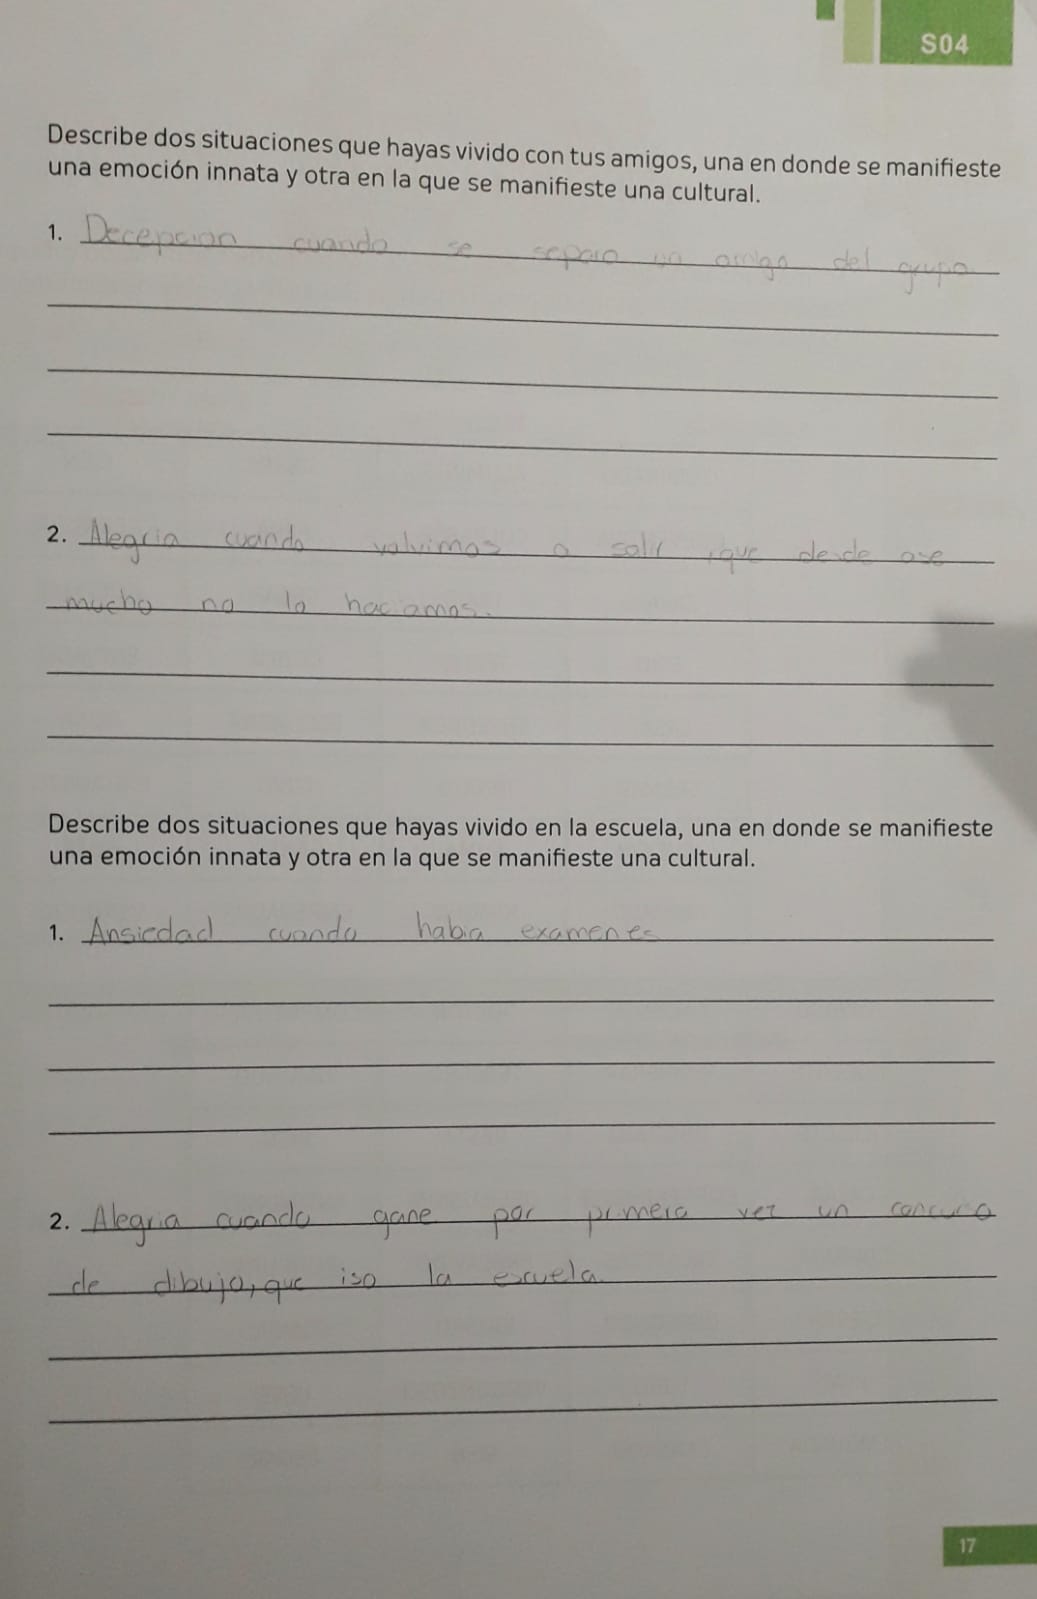 S04
Describe dos situaciones que hayas vivido con tus amigos, una en donde se manifieste
una emoción innata y otra en la que se manifieste una cultural.
1. Decepcion cuando se separo un amigo del grupo.
2. Alegria cuando volvimos a salir, que desde ase
mucho no lo haciamos.
Describe dos situaciones que hayas vivido en la escuela, una en donde se manifieste
una emoción innata y otra en la que se manifieste una cultural.
1. Ansiedad cuando habia examenes
2. Alegria cuando gane por primera vez un concurso
de dibujo, que iso la escuela.
17